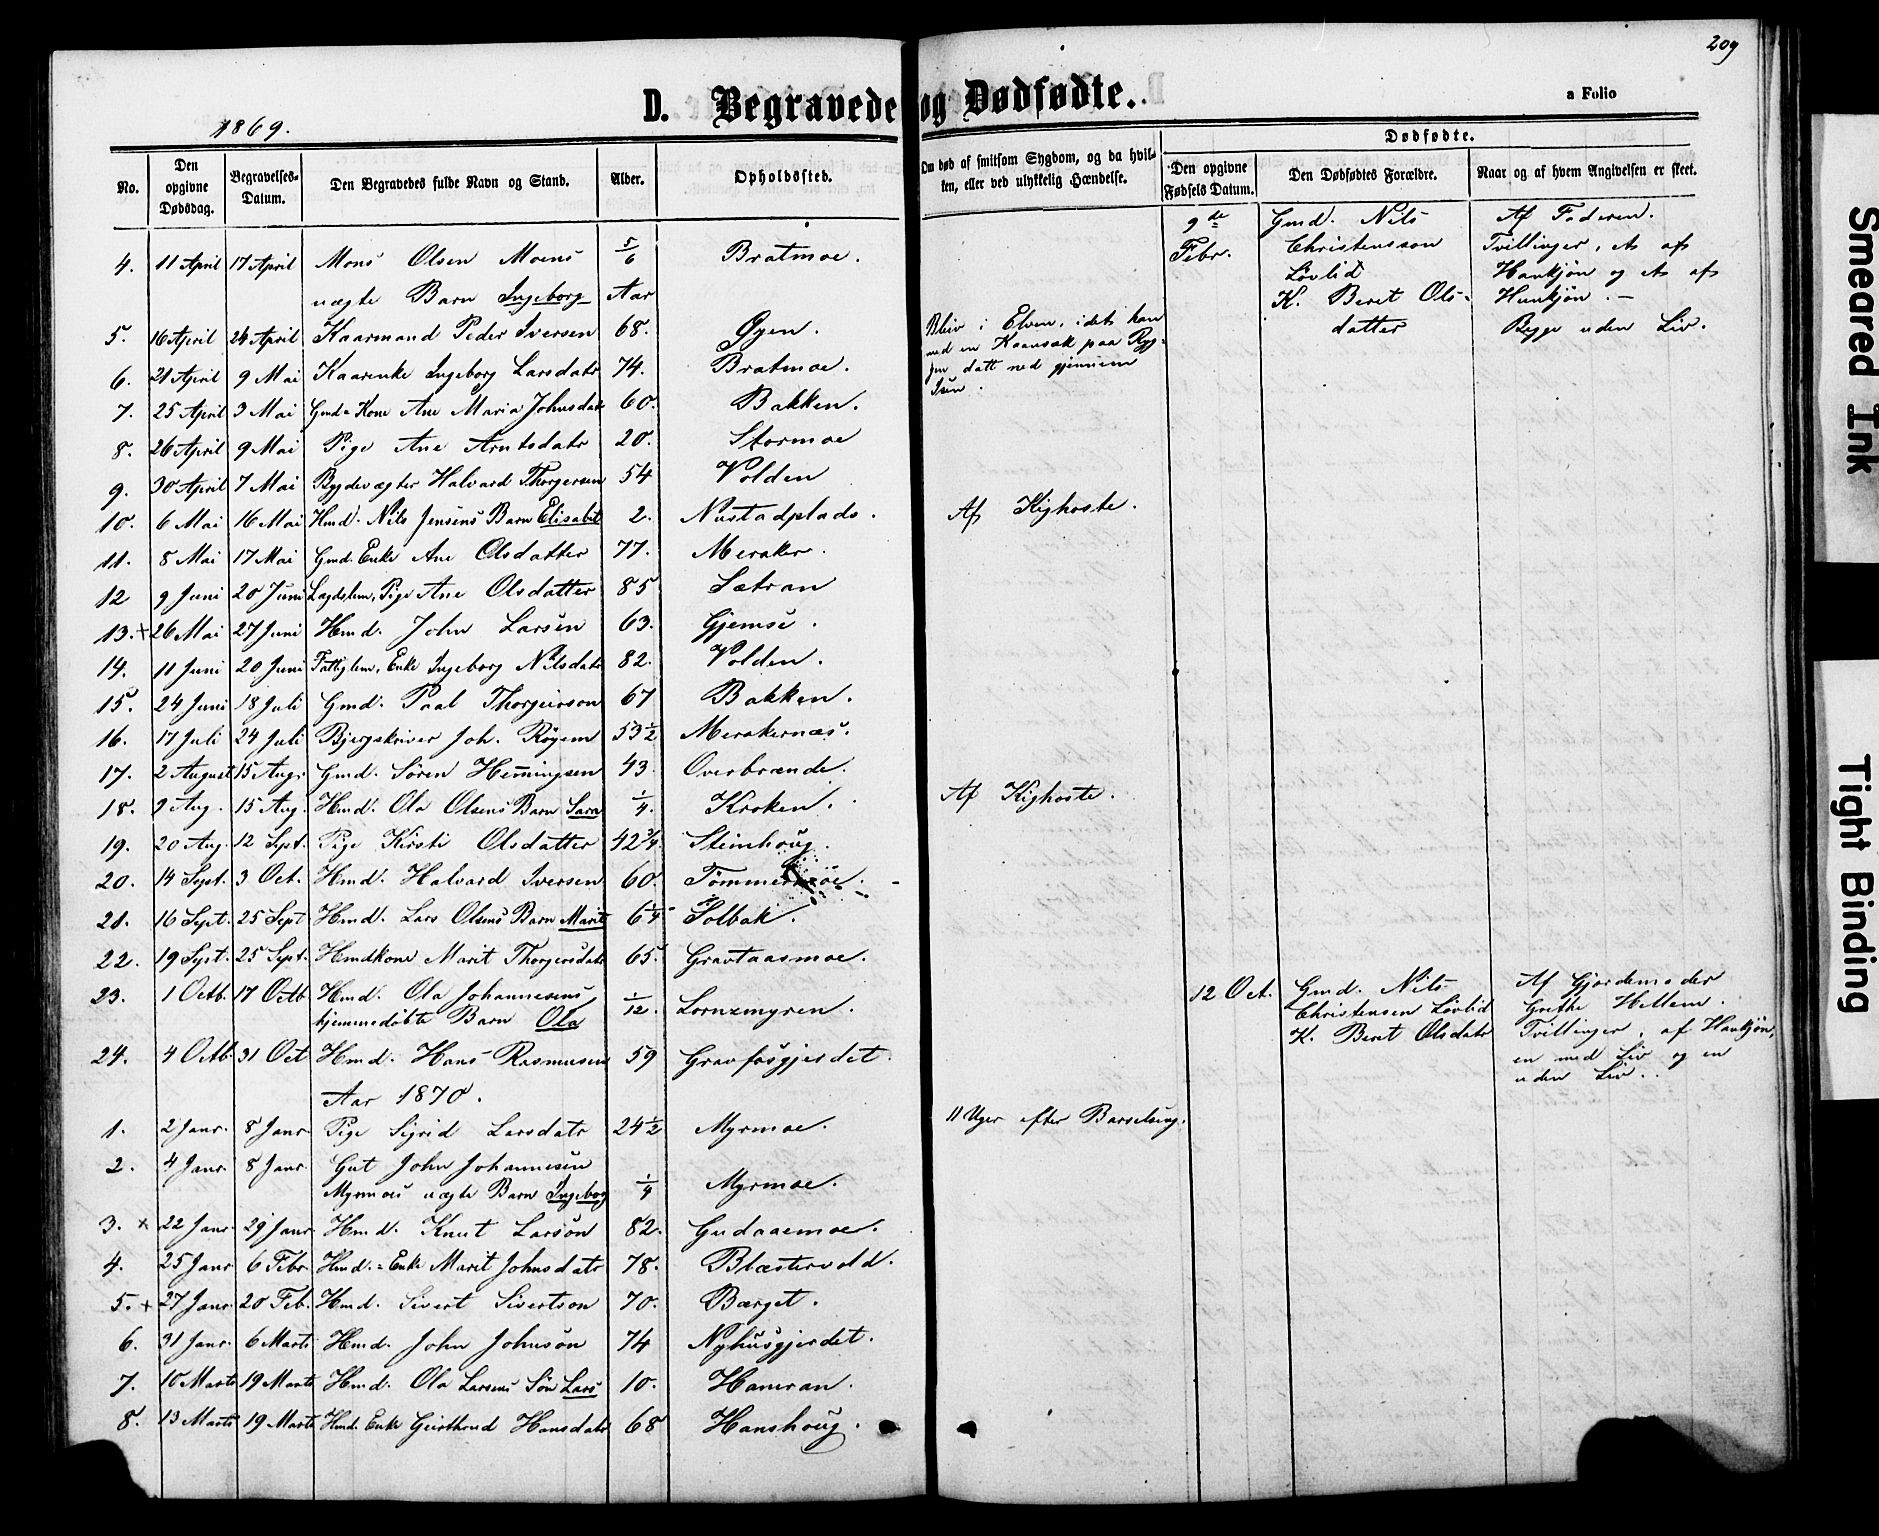 209
D. Begravede og Dødfødte.
a Folio
1869.
No.
Den opgivne Dødsdag.
Begravelses-Datum.
Den Begravedes fulde Navn og Stand.
Alder.
Opholdssted.
Om død af smitsom Sygdom, og da hvilken, eller ved ulykkelig Hændelse.
Dødfødte.
Den opgivne Fødsels Datum.
Den Dødfødtes Forældre.
Naar og af hvem Angivelsen er skeet.
4. 11 April 17 April Mons Olsen Moens 5/6 Bratmoe.
uægte Barn Ingeborg Aar
5. 16 April 24 April Kaarmand Peder Iversen 68. Øyen.
6. 21 April 9 Mai Kaarenke Ingeborg Larsdatr 74. Bratmoe.
7. 25 April 3 Mai Gmd= Kone Ane Maria Johnsdatr 60. Bakken.
8. 26 April 9 Mai Pige Ane Arntsdatr 20. Stormoe
9. 30 April 7 Mai Bygdevægter Halvard Thorgersen 54 Volden
10. 6 Mai 16 Mai Hmd. Nils Jensens Barn Elisabet 2. Nustadplads. Af Kighoste.
11. 8 Mai 17 Mai Gmd. Enke Ane Olsdatter 77. Meraker.
12 9 Juni 20 Juni Lægdslem, Pige Ane Olsdatter 85 Sætran
13. + 26 Mai 27 Juni Hmd. John Larsen 63. Gjemse.
14. 11 Juni 20 Juni Fattiglem, Enke Ingeborg Nilsdatr 82. Volden.
15. 24 Juni 18 Juli Gmd. Paal Thorgersson 67 Bakken.
16. 17 Juli 24 Juli Bjergskriver Joh. Røyem 53 1/2 Merakernæs.
17. 2 August 15 Aug. Gmd. Sören Hemingsen 43 Overbrænde.
18. 9 Aug. 15 Aug. Hmd. Ola Olsens Barn Sara 1/4. Kroken. Af Kighoste.
19. 20 Aug. 12 Sept. Pige Kirsti Olsdatter 42 3/4. Steinhoug.
20. 14 Sept. 3 Oct. Hmd. Halvard Iversen 60. Tömmermoe.
21. 16 Sept. 25 Sept Hmd. Lars Olsens Barn Marit 6 1/4 Solbak.
22. 19 Sept. 25 Sept. Hmdkone Marit Thorgersdatr 65. Gravtaasmoe.
23. 1 Octb. 17 Octb Hmd. Ola Johannesens 1/12. Lornzmyren.
hjemmedøbte Barn Ola
24. 4 Octb 31 Oct Hmd. Hans Rasmusen 59 Gravfosgjerdet.
Aar 1870.
1. 2 Janr. 8 Janr Pige Sigrid Larsdatr 24 1/2 Myrmoe. 11 Uger efter Barselseng.
2. 4 Janr 8 Janr. Gut John Johannesen
Myrmoes uægte Barn Ingeborg 1/4 Myrmoe.
3. x 22 Janr. 29 Janr Hmd. Knut Larsön 82. Gudaaemoe.
4. 25 Janr 6 Febr Hmd.= Enke Marit Johnsdatr 78. Blæstervold.
5. + 27 Janr. 20 Feb. Hmd. Sivert Sivertson 70. Bærget.
6. 31 Janr. 6 Marts Hmd. John Johnsön 74 Nyhusgjerdet.
7. 10 Marts 19 Marts Hmd. Ola Larsens Sön Lars 10. Hamran.
8. 13 Marts 19 Marts Hmd. Enke Gurthrud Hansdatr 68 Hanshoug.
Blev i Elven, idet han
med en Kaarnsæk paa Ryg-
gen datt ned gjennem
Isen.
9de Febr.
Gmd. Nils
Christensson
Lövlid
K. Beret Ols-
datter
Af Faderen.
Tvillinger, et af
Hankjön og et af
Hunkjön. —
Begge uden Liv.
12 Oct.
Gmd. Nils
Christensen Lövlid
K. Beret Olsdatr
Af Gjordemoder
Grethe Hellem.
Tvillinger, af Hankjön,
en med Liv og en
uden Liv.
Smeared Ink
Tight Binding